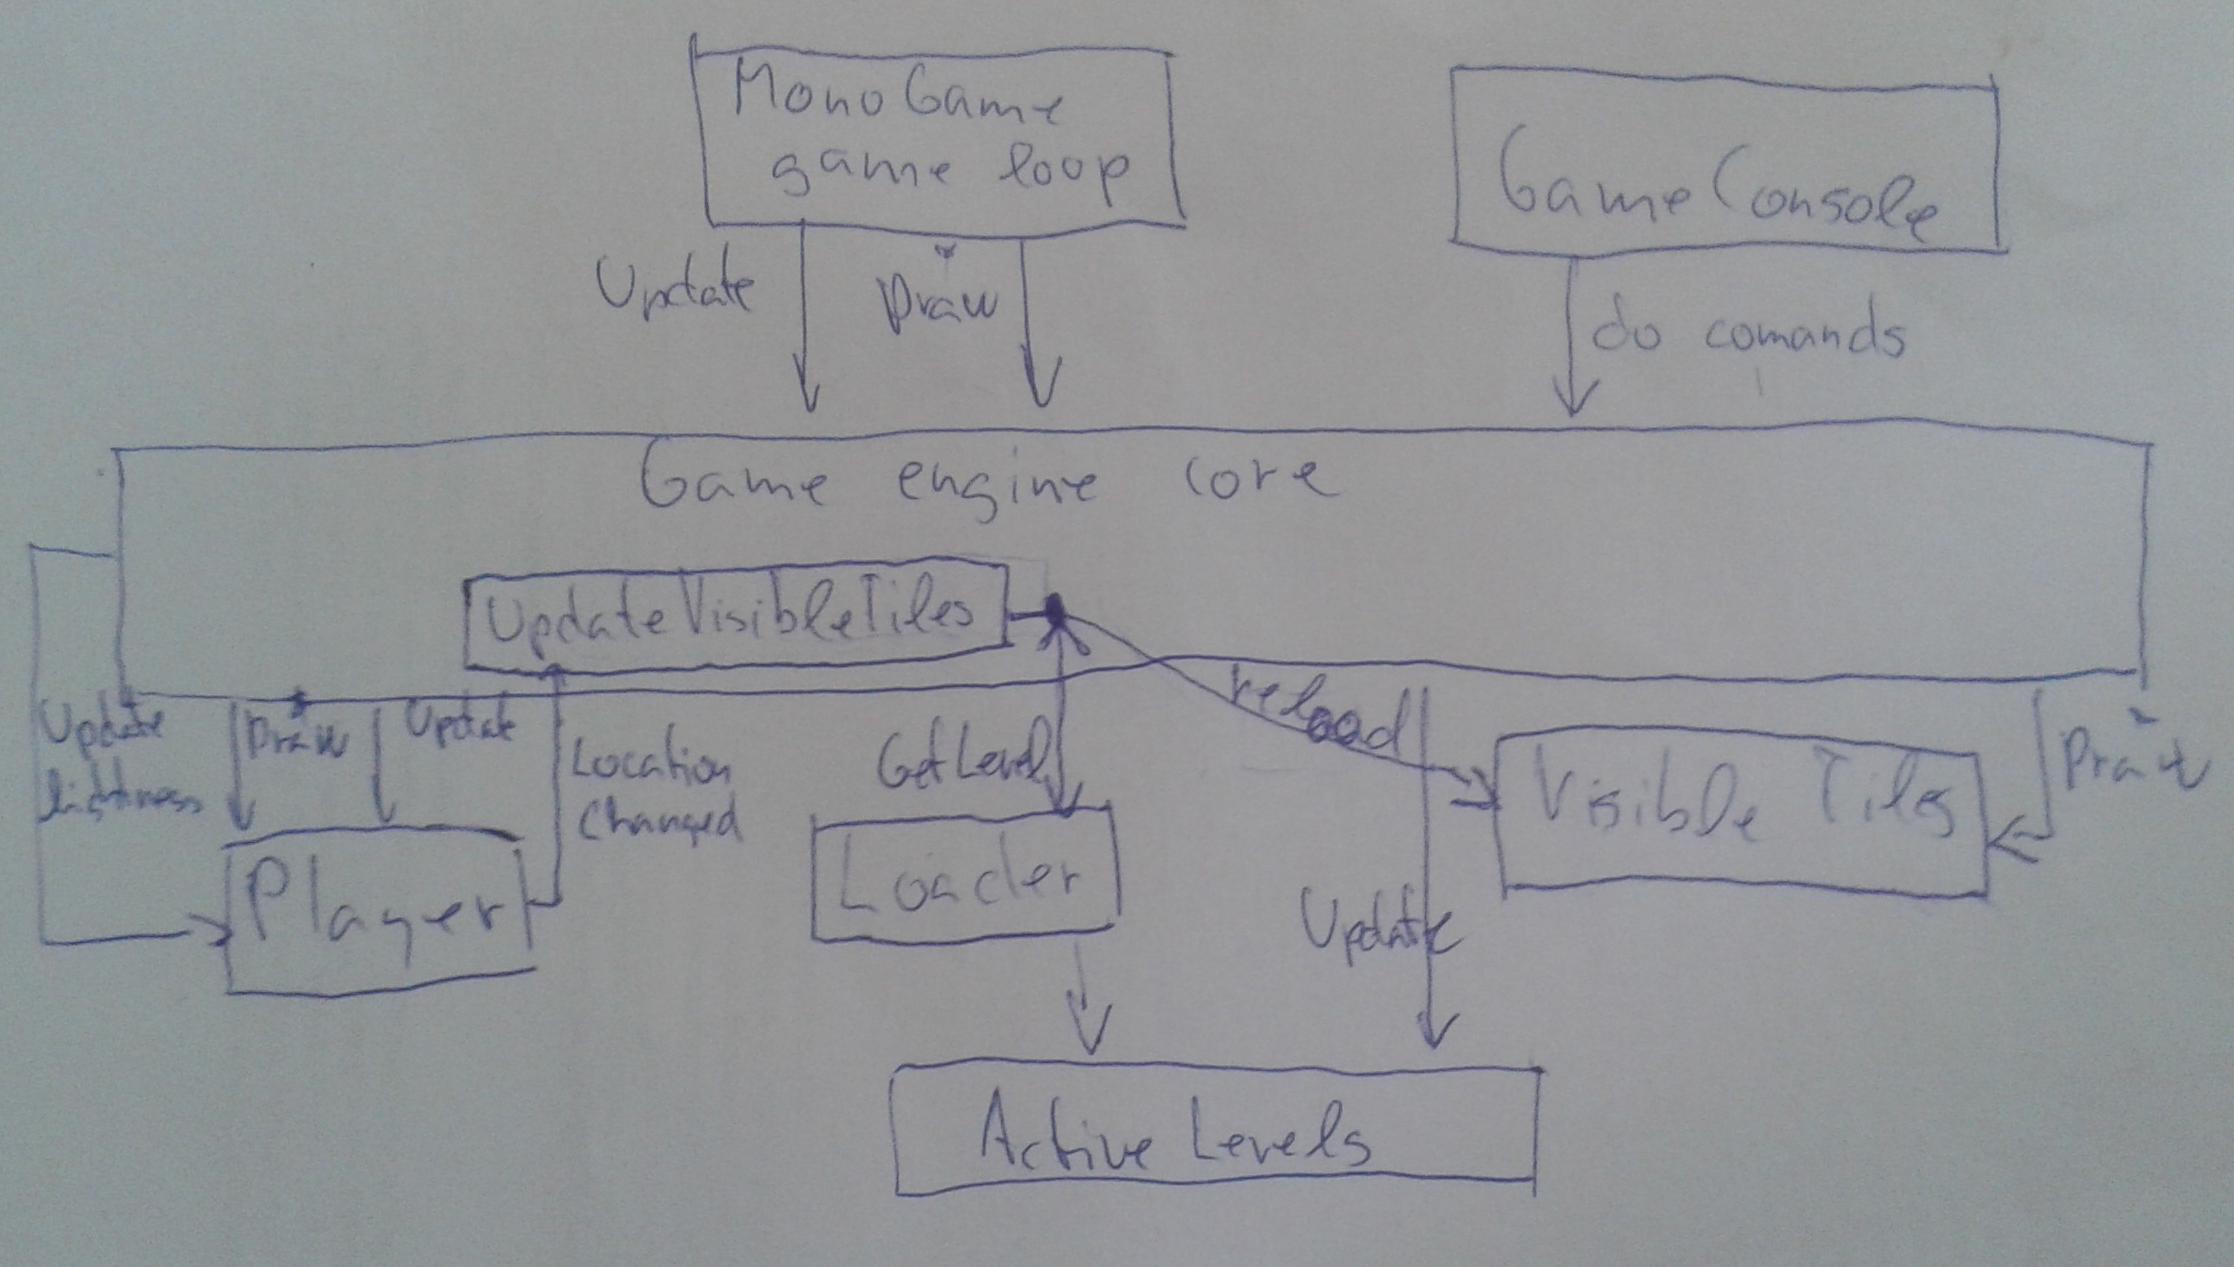 MonoGame
game loop
GameConsole
Update
Draw
do comands
Game engine core
UpdateVisibleTiles
Update
lightness
Draw
Update
Location
Changed
GetLevel
reload
Draw
Visible Tiles
Player
Loader
Update
Active Levels